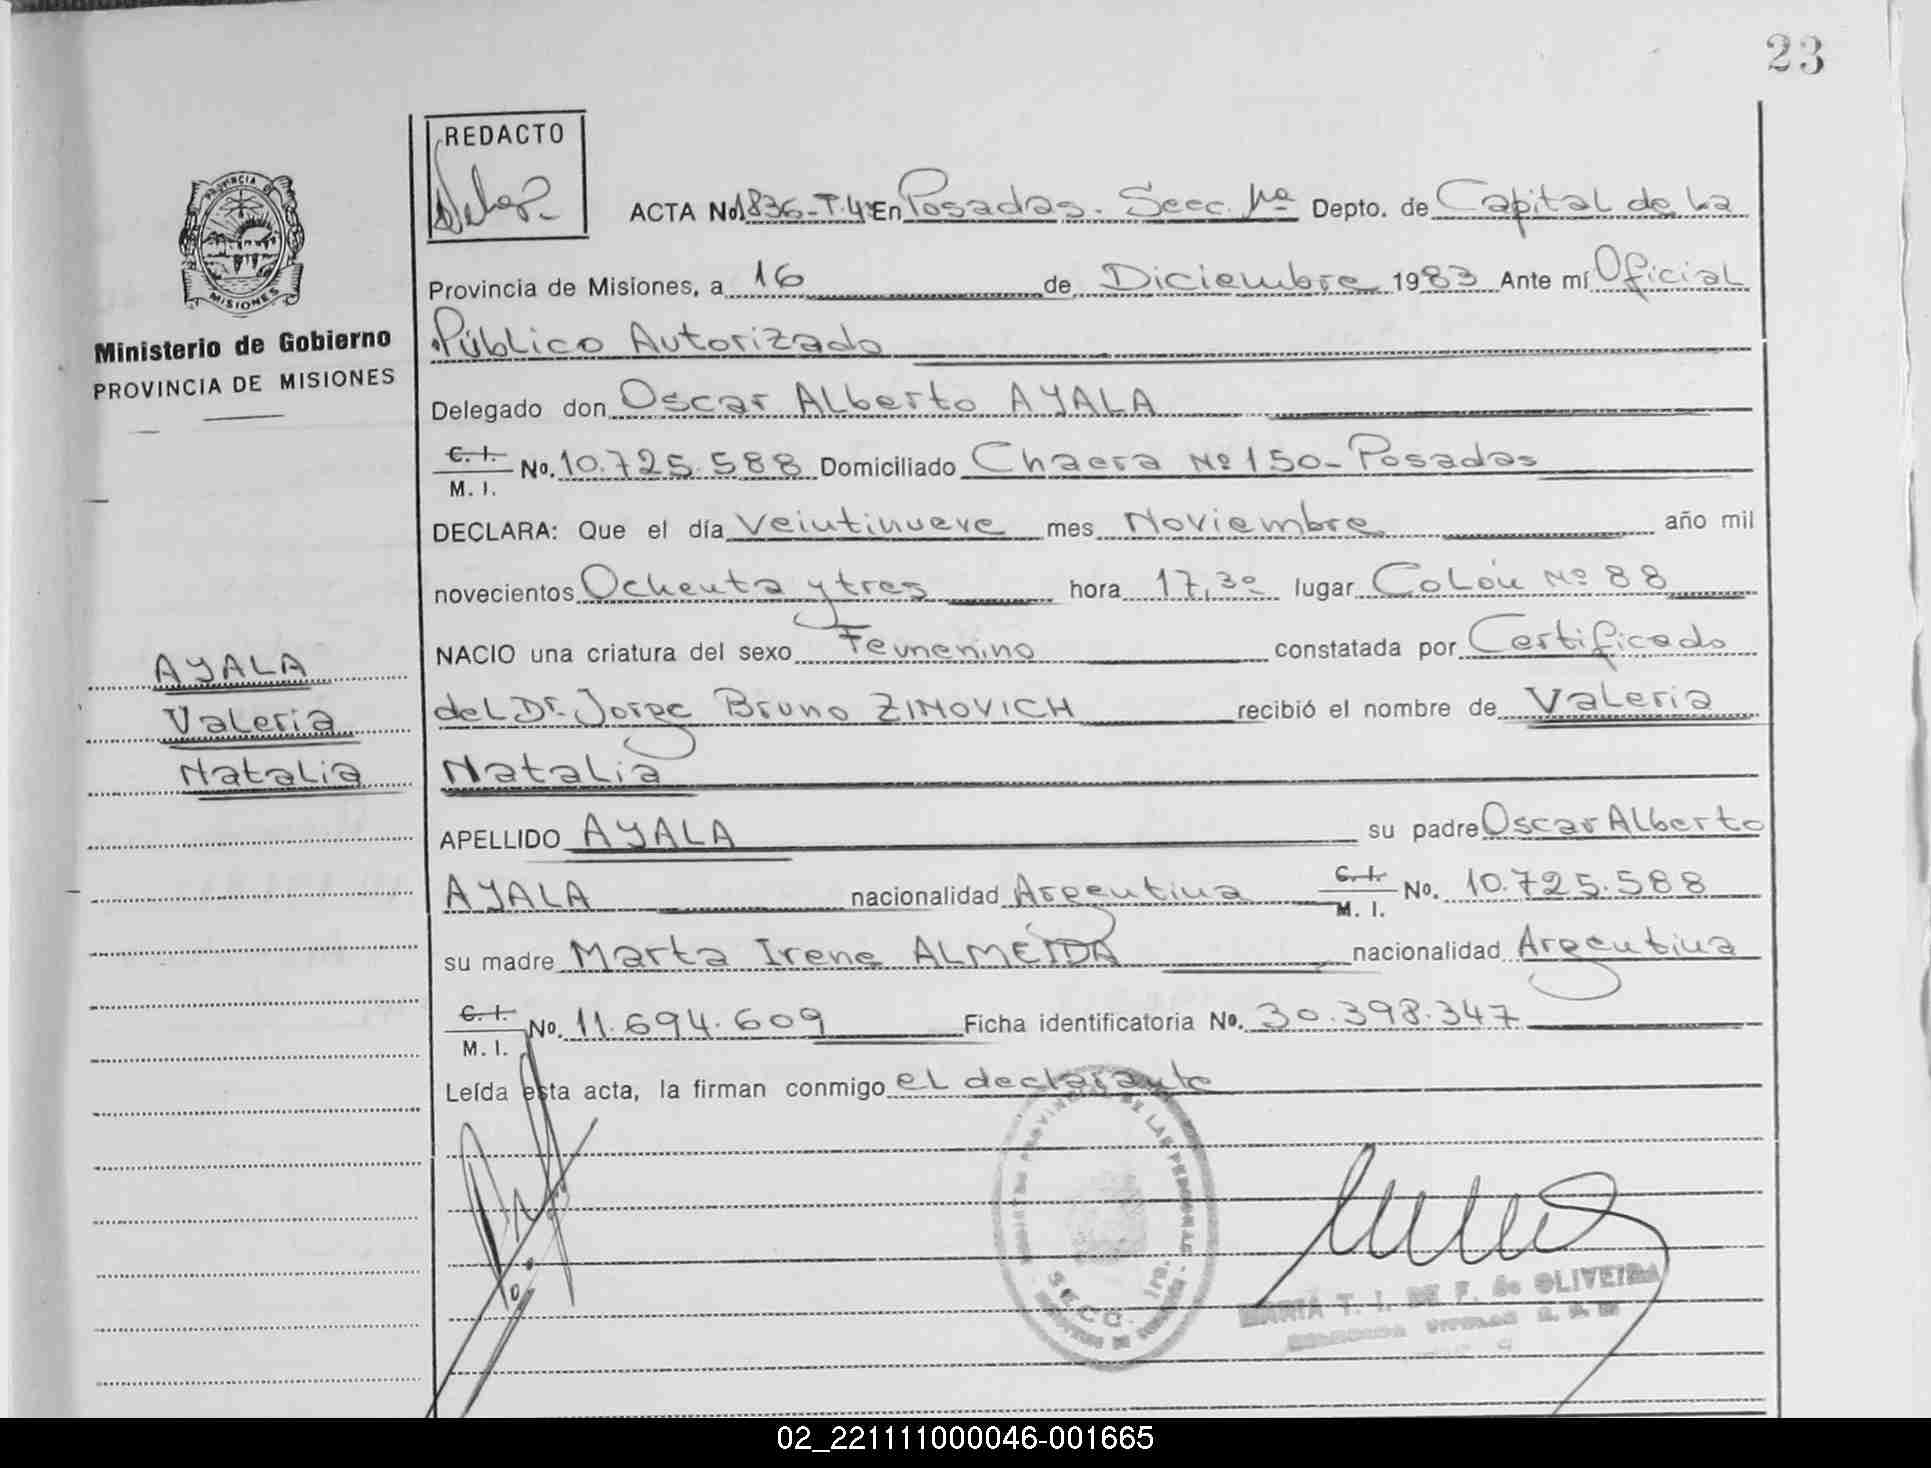 23
REDACTO
PROVINCIA DE
MISIONES
Ministerio de Gobierno
PROVINCIA DE MISIONES
ACTA No 1836-T.4º En Posadas. Secc. 1ra Depto. de Capital de la
Provincia de Misiones, a 16 de Diciembre 1983 Ante mí Oficial
Público Autorizado
Delegado don Oscar Alberto AYALA
C. I.
M. I. No. 10.725.588 Domiciliado Chacra Nº 150- Posadas
DECLARA: Que el día veintinueve mes Noviembre año mil
novecientos Ochenta y tres hora 17,30 lugar Colón Nº 88
NACIO una criatura del sexo Femenino constatada por Certificado
del Dr. Jorge Bruno ZINOVICH recibió el nombre de Valeria
Natalia
APELLIDO AYALA su padre Oscar Alberto
AYALA nacionalidad Argentina C. I.
M. I. No. 10.725.588
su madre Marta Irene ALMEIDA nacionalidad Argentina
C. I.
M. I. No. 11.694.609 Ficha identificatoria No. 30.398.347
Leída esta acta, la firman conmigo el declarante
AYALA
Valeria
Natalia
DE LAS PERSONAS
SECC. 1ra.
MARIA T. I. DE F. de OLIVEIRA
02_221111000046-001665